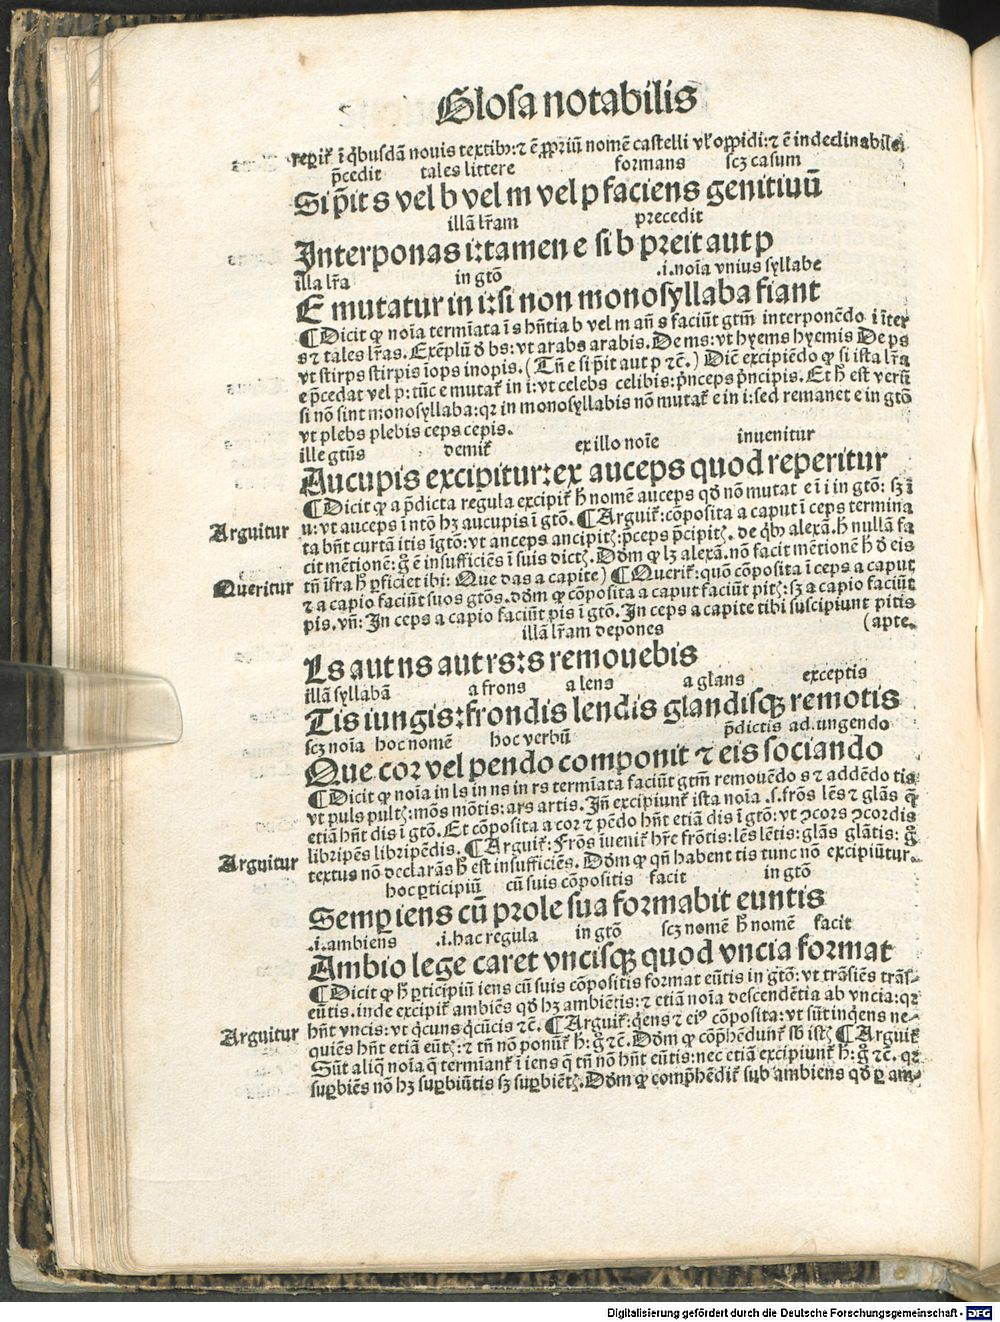 Glosa notabilis
reꝑit᷑ ī q̇busdā nouis textibꝰ: ⁊ ē ꝓpriū nomē castelli vl̓ oppidi: ⁊ ē indeclinabile.
p̄cedit tales littere formans scꝫ casum
Si p̄it s vel b vel m vel p faciens genitiuū
illā lr̄am precedit
Interponas i: tamen e si b preit aut p
illa lr̄a in gtō .i. noīa vnius syllabe
E mutatur in i: si non monosyllaba fiant
¶ Dicit ꝙ noīa termīata ī s hn̄tia b vel m añ s faciūt gtm̄ interponēdo i īter
s ⁊ tales lr̄as. Exēplū ď bs: vt arabs arabis. De ms: vt hyems hyemis De ps
vt stirps stirpis iops inopis. (Tn̄ e si p̄it aut p ⁊c̄.) Diē excipiēdo ꝙ si ista lr̄a
e p̄cedat vel p: tūc e mutat᷑ in i: vt celebs celibis: p̄nceps p̄ncipis. Et h̄ est verū
si nō sint monosyllaba: qꝛ in monosyllabis nō mutat᷑ e in i: sed remanet e in gtō
vt plebs plebis ceps cepis.
ille gtūs demit᷑ ex illo noīe inuenitur
Aucupis excipitur: ex auceps quod reperitur
¶ Dicit ꝙ a p̄dicta regula excipit᷑ h̄ nomē auceps qď nō mutat e ī i in gtō: sꝫ ī
Arguitur
u: vt auceps ī ntō hꝫ aucupis ī gtō. ¶ Arguit᷑: cōposita a caput ī ceps termina
ta hn̄t curtā itis īgtō: vt anceps ancipitꝭ: p̄ceps p̄cipitꝭ. de q̇bꝰ alexā. h̄ nullā fa
cit mētionē: g̊ ē insufficiēs ī suis dictꝭ. Dďm ꝙ lꝫ alexā. nō facit mētionē h̄ ď eis
Queritur
tn̄ īfra h̄ ꝑficiet ibi: Que das a capite) ¶ Querit᷑: quō cōposita ī ceps a caput
⁊ a capio faciūt suos gtōs. dďm ꝙ cōposita a caput faciūt pitꝭ: sꝫ a capio faciūt
pis. vn̄: In ceps a capio faciūt pis ī gtō. In ceps a capite tibi suscipiunt pitis
illā lr̄am depones (apte.
Ls aut ns aut rs: s remouebis
illā syllabā a frons a lens a glans exceptis
Tis iungis: frondis lendis glandisqꝫ remotis
scꝫ noīa hoc nomē hoc verbū p̄dictis ad iungendo
Que cor vel pendo componit ⁊ eis sociando
¶ Dicit ꝙ noīa in ls in ns in rs termīata faciūt gtm̄ remouēdo s ⁊ addēdo tis
vt puls pultꝭ: mōs mōtis: ars artis. Jn̄ excipiunt᷑ ista noīa .s. frōs lēs ⁊ glās q̄
etiā hn̄t dis ī gtō. Et cōposita a cor ⁊ pēdo hn̄t etiā dis ī gtō: vt ↄcors ↄcordis
libripēs libripēdis. ¶ Arguit᷑: Frōs īuenit᷑ hr̄e frōtis: lēs lētis: glās glātis: g̊
Arguitur
textus nō declarās h̄ est insufficiēs. Dďm ꝙ qn̄ habent tis tunc nō excipiūtur.
hoc ꝑticipiū cū suis cōpositis facit in gtō
Semꝑ iens cū prole sua formabit euntis
.i. ambiens .i. hac regula in gtō scꝫ nomē h̄ nomē facit
Ambio lege caret vncisqꝫ quod vncia format
¶ Dicit ꝙ h̄ ꝑticipiū iens cū suis cōpositis format eūtis in gtō: vt trāsiēs trās-
eūtis. inde excipit᷑ ambiēs qď hꝫ ambiētis: ⁊ etiā noīa descendētia ab vncia: qꝛ
hn̄t vncis: vt q̇cuns q̇cūcis ⁊c̄. ¶ Arguit᷑: q̇ens ⁊ eiꝰ cōposita: vt sūt inq̇ens ne-
Arguitur
quiēs hn̄t etiā eūtꝭ: ⁊ tn̄ nō ponūt᷑ h̄: g̊ ⁊c̄. Dďm ꝙ cōp̄hēdunt᷑ sb̄ istꝭ ¶ Arguit᷑
Sūt aliq̄ noīa q̄ termīant᷑ ī iens q̄ tn̄ nō hn̄t eūtis: nec etiā excipiunt᷑ h̄: g̊ ⁊c̄. qꝛ
suꝑbiēs nō hꝫ suꝑbiūtis sꝫ suꝑbiētꝭ. Dďm ꝙ comp̄hēdit᷑ sub ambiens qď ꝑ am-
Digitalisierung gefördert durch die Deutsche Forschungsgemeinschaft - DFG